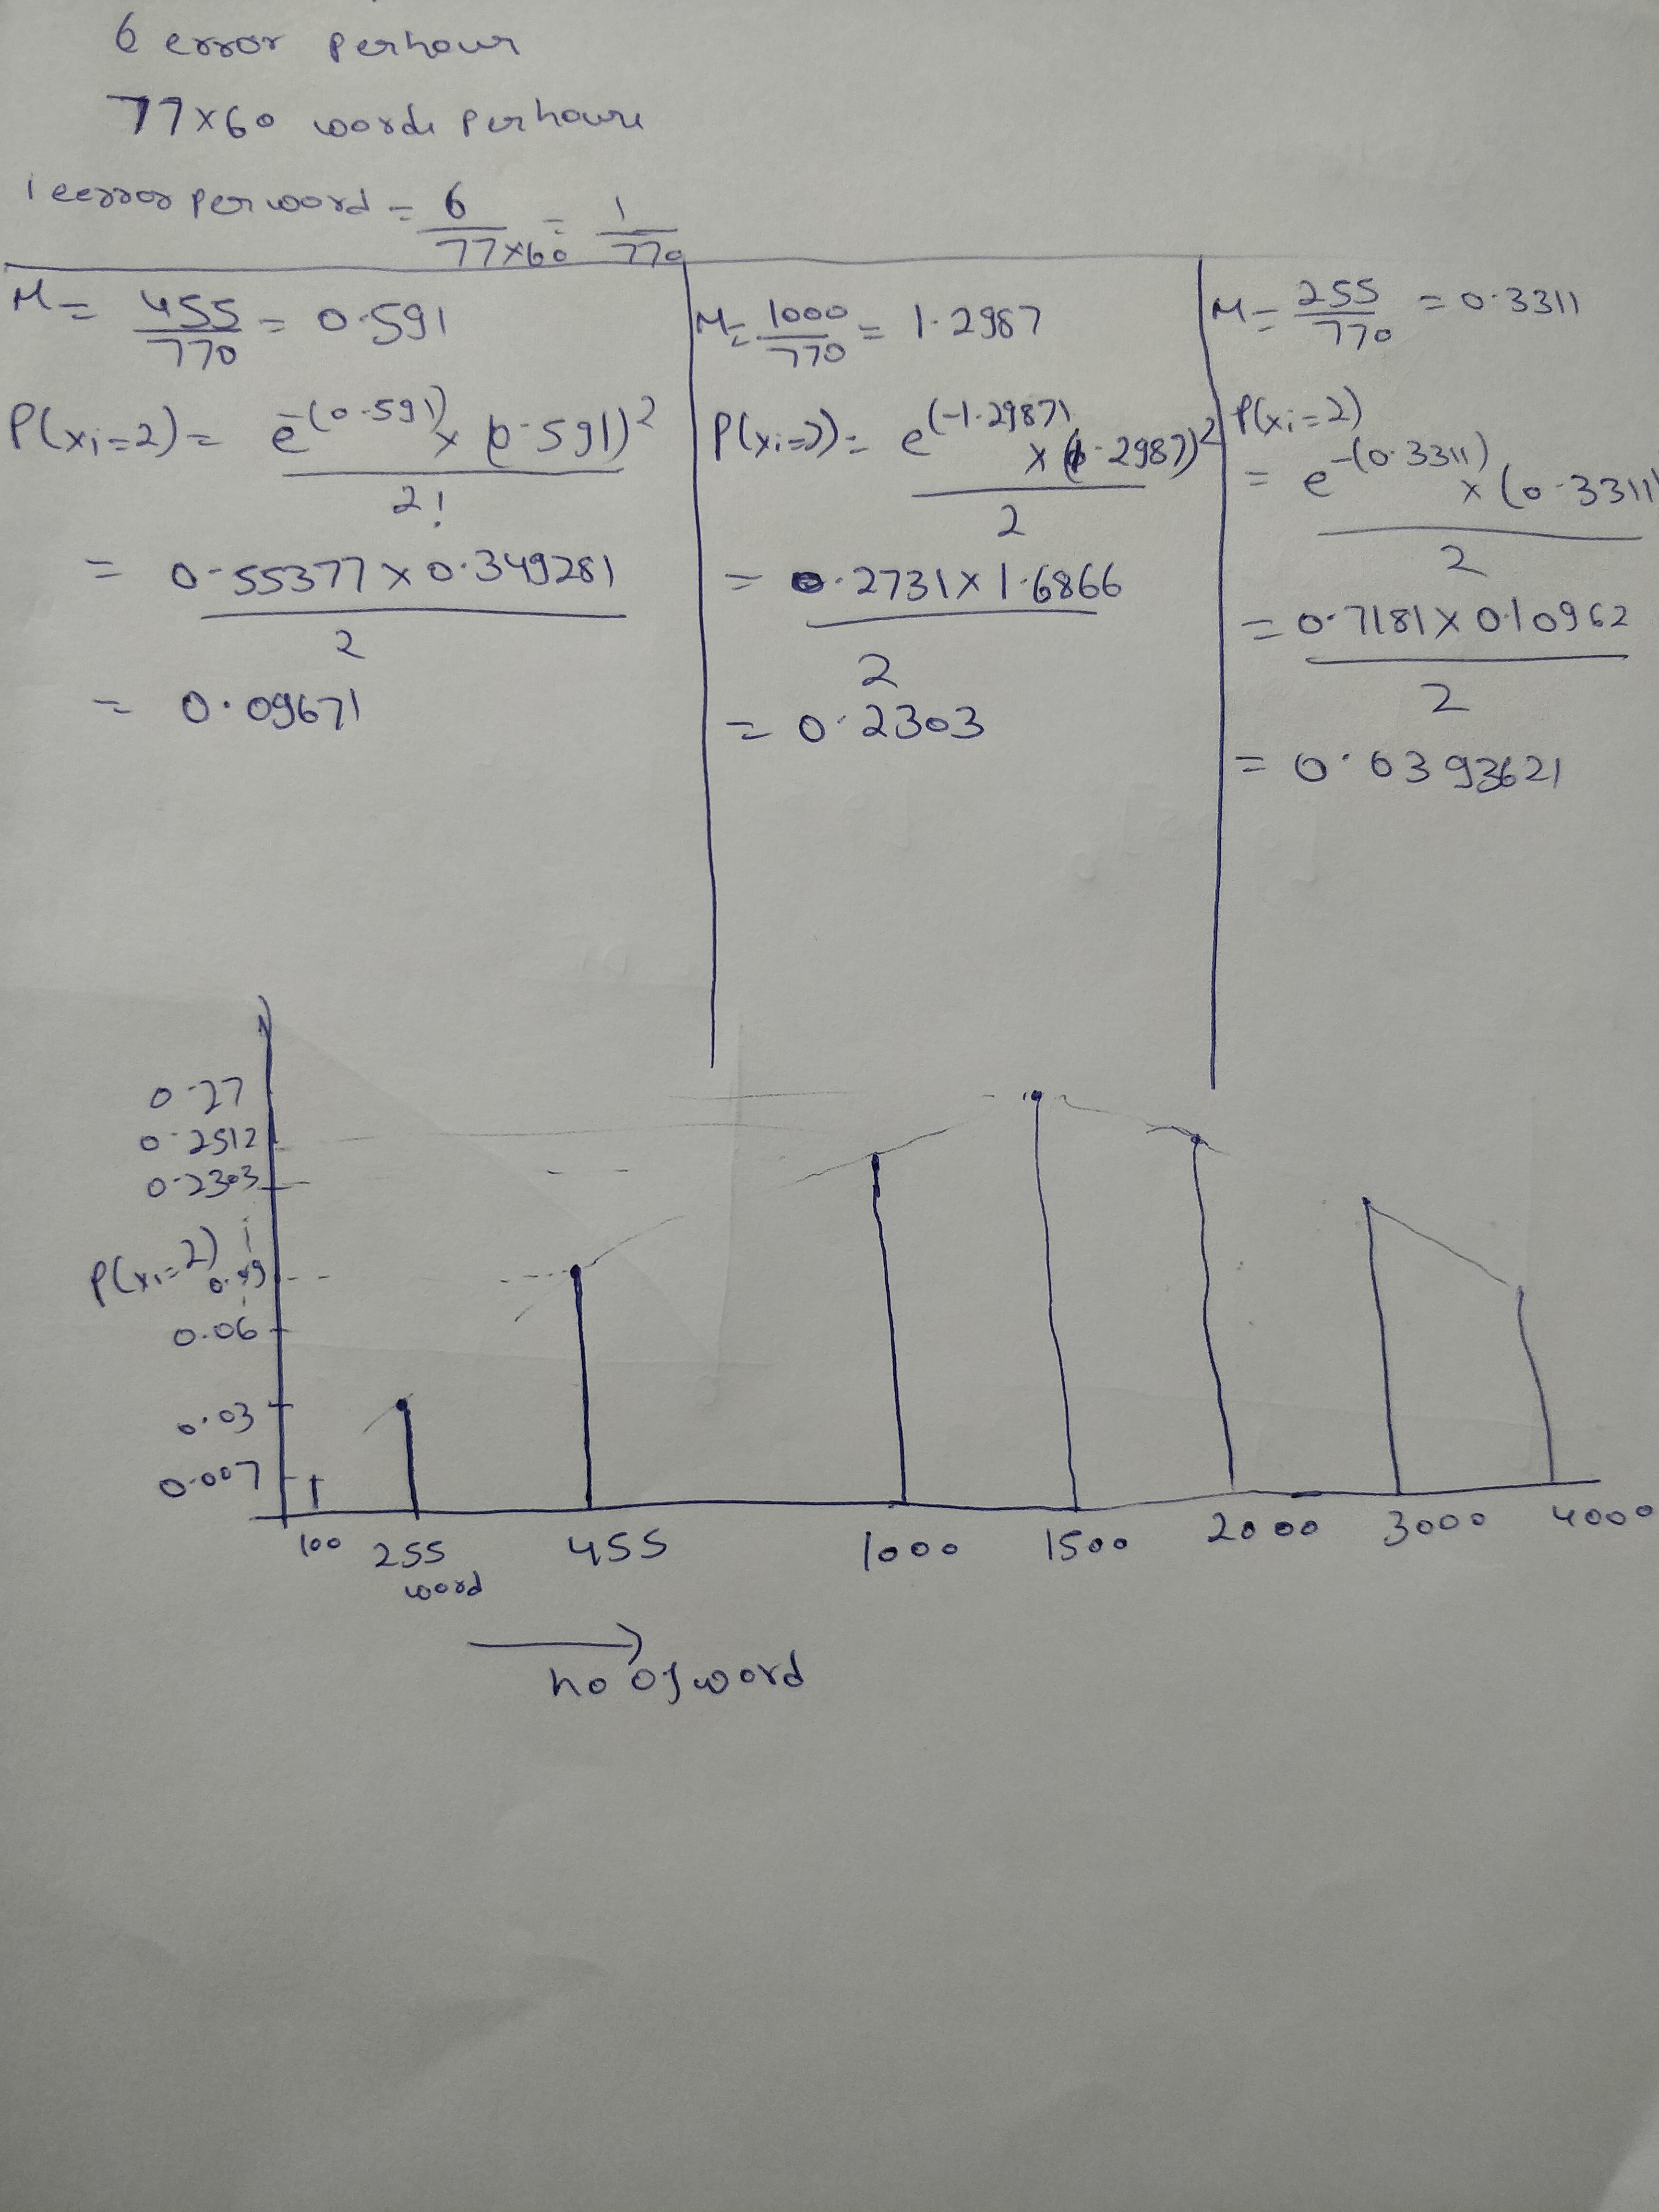 6 error per hour
77×60 words per houre
1 eerror per word = 6/77×60 = 1/770
M = 455/770 = 0.591
P(xi=2) = e^-(0.591) × (0.591)^2 / 2!
= 0.55377 × 0.349281 / 2
= 0.09671
M = 1000/770 = 1.2987
P(xi=2) = e^(-1.2987) × (1.2987)^2 / 2
= 0.2731 × 1.6866 / 2
= 0.2303
M = 255/770 = 0.3311
P(xi=2)
= e^-(0.3311) × (0.3311) / 2
= 0.7181 × 0.10962 / 2
= 0.0393621
0.27
0.2512
0.2303
P(xi=2)
0.06
0.03
0.007
100 255 455 1000 1500 2000 3000 4000
word
no of word